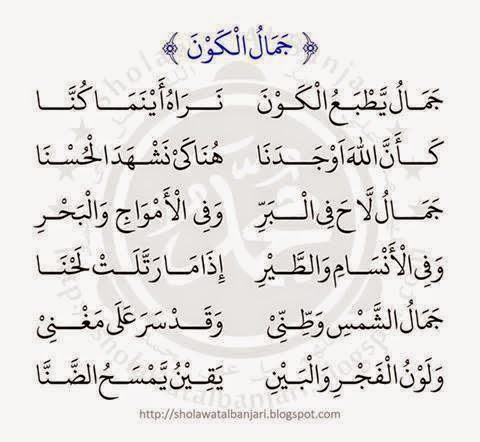 ﴿ جَمَالُ الْكَوْنَ ﴾
جَمَالُ يَّطْبَعُ الْكَوْنَ نَرَاهُ أَيْنَمَا كُنَّا
كَأَنَّ اللهَ اَوْجَدَنَا هُنَا كَيْ نَشْهَدَ الْحُسْنَا
جَمَالُ لَّاحَ فِى الْبَرِّ وَفِى الْأَمْوَاجِ وَالْبَحْرِ
وَفِى الْأَنْسَامِ وَالطَّيْرِ إِذَا مَا رَتَّلَتْ لَحْنَا
جَمَالُ الشَّمْسِ وَظِنِّيْ وَقَدْ سَرَ عَلَى مَغْنِيْ
وَلَوْنُ الْفَجْرِ وَالْبَيْنِ يَقِيْنُ يَّمْسَحُ الضَّنَّا
http://sholawatalbanjari.blogspot.com